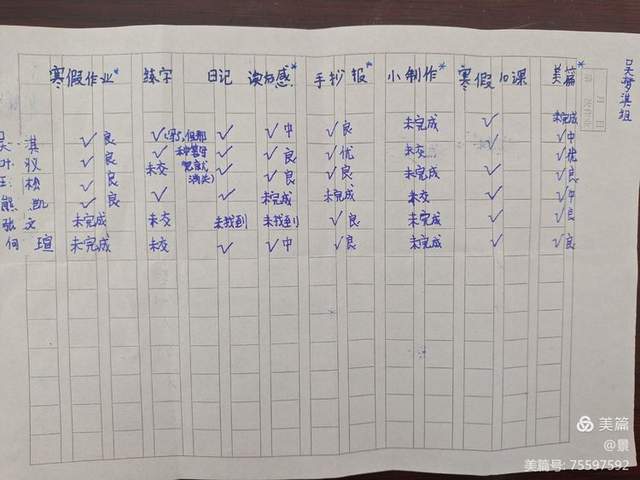 寒假作业* 练字 日记 读后感* 手抄报* 小制作* 寒假10课 美篇*
吴梦淇组
吴 淇 ✓良 ✓(写,但那种笔写完就消失) ✓ ✓中 ✓良 未完成 ✓ 未完成
叶 仪 ✓良 ✓ ✓ ✓良 ✓优 未交 ✓ ✓中
王 松 ✓良 未交 ✓ ✓良 ✓良 未完成 ✓ ✓优
熊 凯 ✓良 ✓ ✓ 未完成 未完成 未交 ✓ ✓良
张 文 未完成 未交 未找到 未找到 ✓良 未完成 ✓ ✓中
何 瑄 未完成 未交 ✓ ✓中 ✓良 未完成 ✓ ✓良
✓良
美篇
@景
美篇号: 75597592